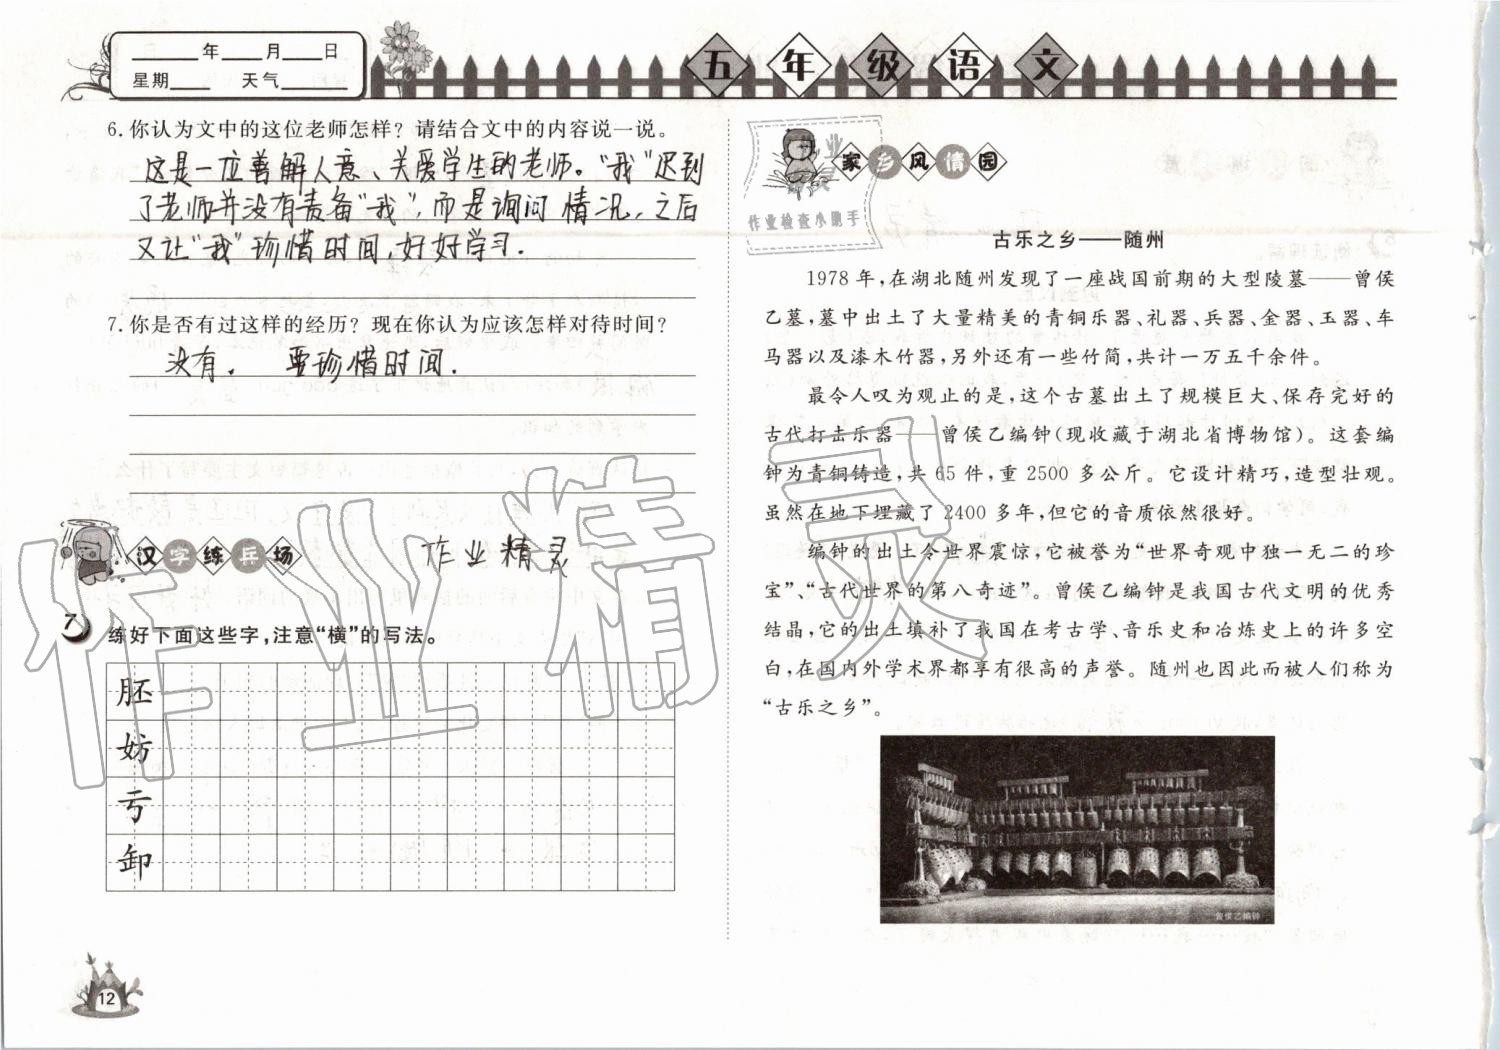 ____年____月____日
星期____ 天气______
五年级语文
6.你认为文中的这位老师怎样？请结合文中的内容说一说。
这是一位善解人意、关爱学生的老师。“我”迟到
了老师并没有责备“我”，而是询问情况，之后
又让“我”珍惜时间，好好学习.
7.你是否有过这样的经历？现在你认为应该怎样对待时间？
没有. 要珍惜时间.
汉字练兵场
作业精灵
7
练好下面这些字，注意“横”的写法。
胚
妨
亏
卸
12
作业检查小助手
家乡风情园
古乐之乡——随州
1978年，在湖北随州发现了一座战国前期的大型陵墓——曾侯
乙墓，墓中出土了大量精美的青铜乐器、礼器、兵器、金器、玉器、车
马器以及漆木竹器，另外还有一些竹简，共计一万五千余件。
最令人叹为观止的是，这个古墓出土了规模巨大、保存完好的
古代打击乐器——曾侯乙编钟（现收藏于湖北省博物馆）。这套编
钟为青铜铸造，共65件，重2500多公斤。它设计精巧，造型壮观。
虽然在地下埋藏了2400多年，但它的音质依然很好。
编钟的出土令世界震惊，它被誉为“世界奇观中独一无二的珍
宝”、“古代世界的第八奇迹”。曾侯乙编钟是我国古代文明的优秀
结晶，它的出土填补了我国在考古学、音乐史和冶炼史上的许多空
白，在国内外学术界都享有很高的声誉。随州也因此而被人们称为
“古乐之乡”。
曾侯乙编钟
作业精灵